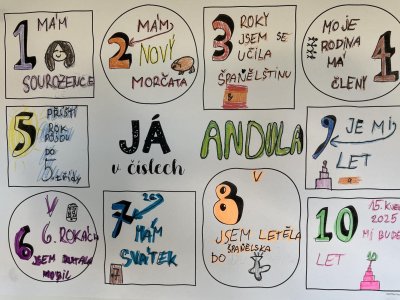 1 MÁM
SOUROZENCE
MÁM
2 NOVÝ
MORČATA
3 ROKY
JSEM SE
UČILA
ŠPANĚLŠTINU
MOJE
RODINA
MÁ
4
ČLENY
5 PŘÍŠTÍ
ROK
PŮJDU
DO
5.
JÁ
v číslech
ANDULA
9 JE MI
LET
V
6 6. ROKÁCH
JSEM DOSTALA
MOBIL
7
MÁM
SVÁTEK
V
8
JSEM LETĚLA
DO ŠPANĚLSKA
10
2025
MI BUDE
LET 10